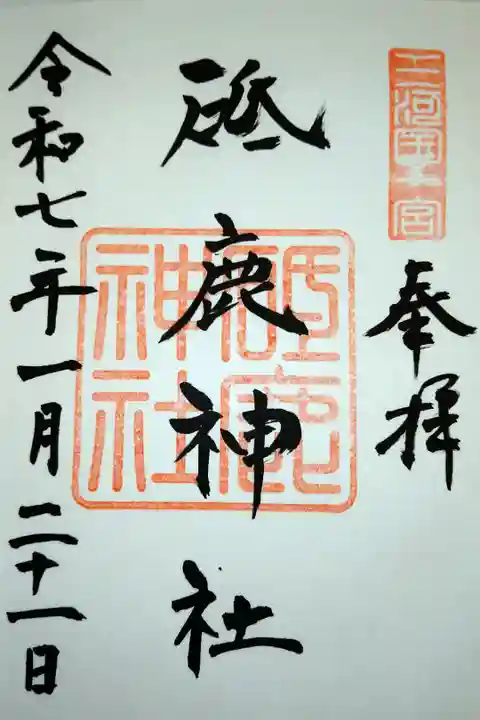 三河國一宮
奉拝
砥鹿神社
砥鹿
神社
令和七年一月二十一日